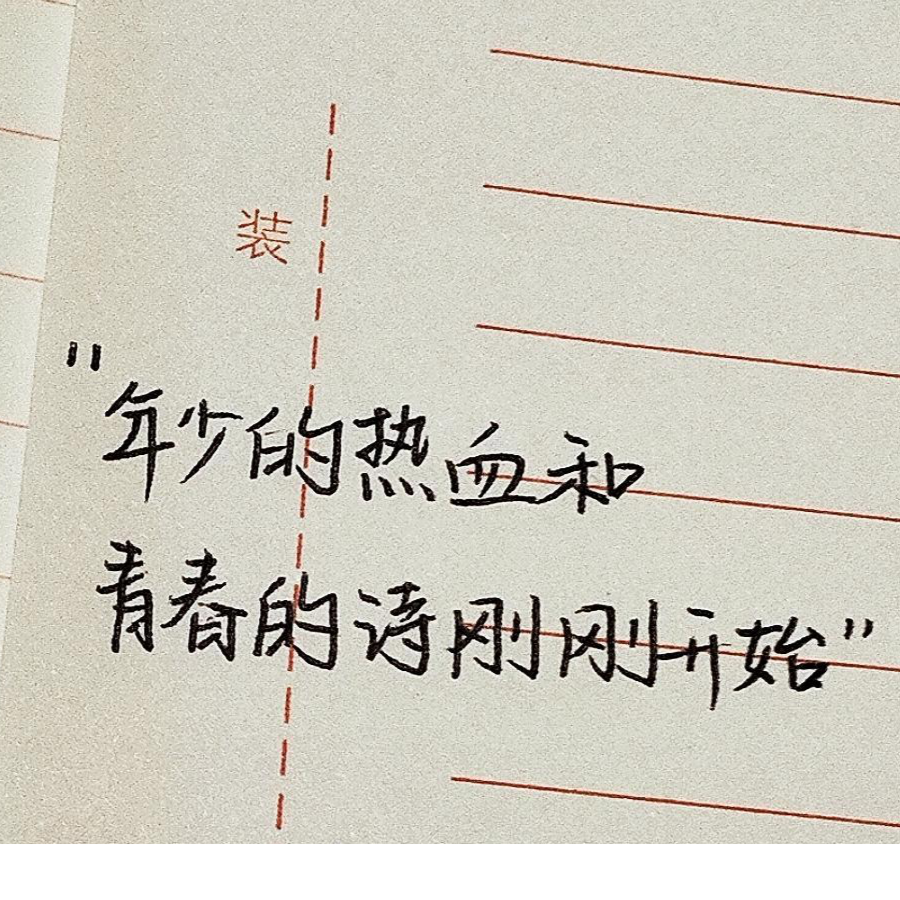 装
"年少的热血和
青春的诗刚刚开始"